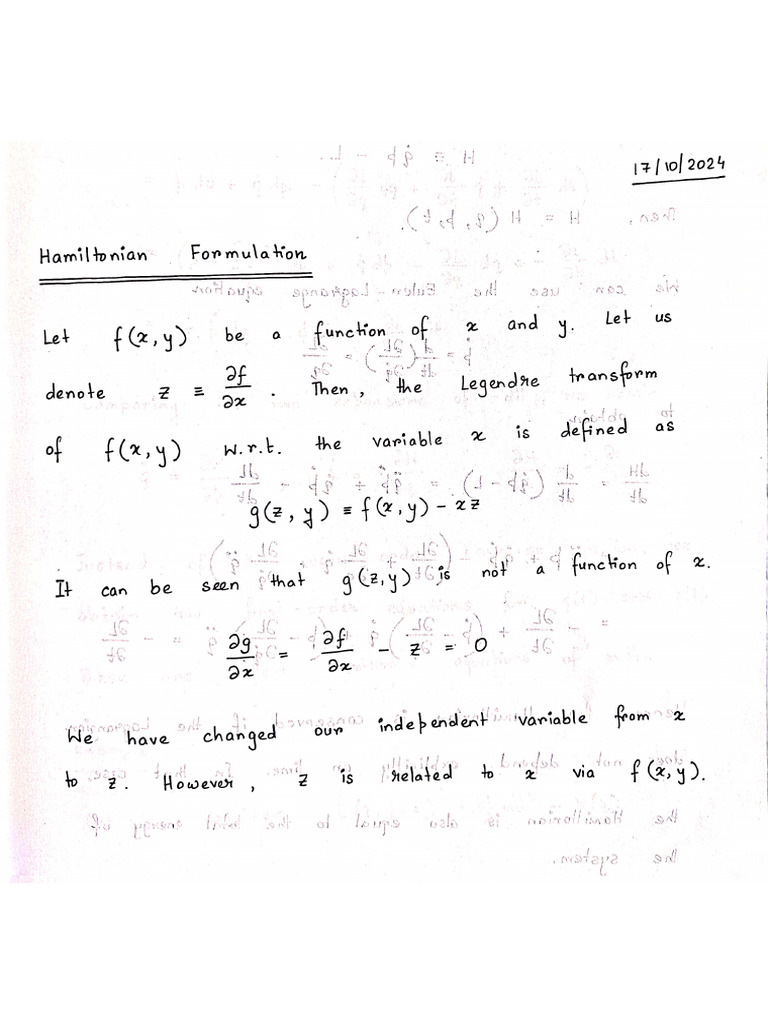 17/10/2024
Hamiltonian Formulation
Let f(x, y) be a function of x and y. Let us
denote z ≡ ∂f/∂x . Then, the Legendre transform
of f(x, y) w.r.t. the variable x is defined as
g(z, y) ≡ f(x, y) - xz
It can be seen that g(z, y) is not a function of x.
∂g/∂x = ∂f/∂x - z = 0
We have changed our independent variable from x
to z. However, z is related to x via f(x, y).